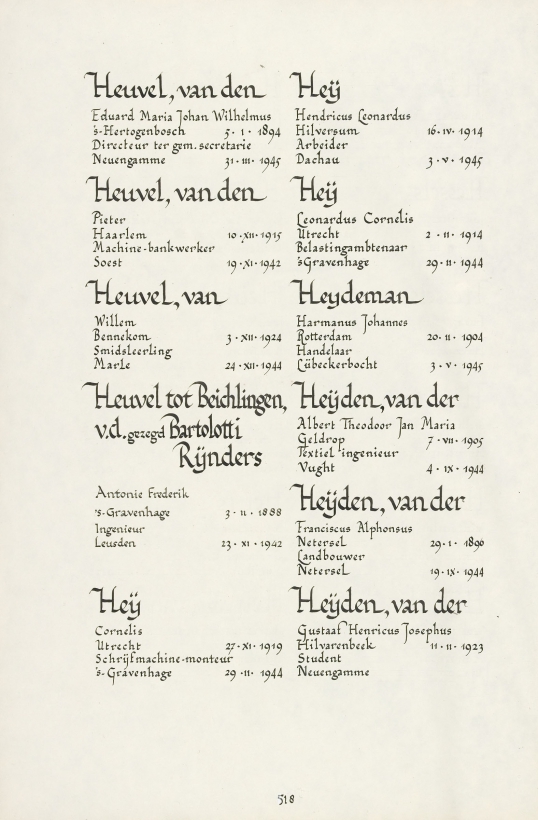 Heuvel, van den
Eduard Maria Johan Wilhelmus
's-Hertogenbosch 5·1·1894
Directeur ter gem. secretarie
Neuengamme 31·III·1945
Heuvel, van den
Pieter
Haarlem 10·XII·1915
Machine-bankwerker
Soest 19·XI·1942
Heuvel, van
Willem
Bennekom 3·XII·1924
Smidsleerling
Marle 24·XII·1944
Heuvel tot Beichlingen,
v.d. gezegd Bartolotti
Rijnders
Antonie Frederik
's-Gravenhage 3·11·1888
Ingenieur
Leusden 23·XI·1942
Heij
Cornelis
Utrecht 27·XI·1919
Schrijfmachine-monteur
's-Gravenhage 29·11·1944
Heij
Hendricus Leonardus
Hilversum 16·IV·1914
Arbeider
Dachau 3·V·1945
Heij
Leonardus Cornelis
Utrecht 2·11·1914
Belastingambtenaar
'sGravenhage 29·11·1944
Heydeman
Harmanus Johannes
Rotterdam 20·11·1904
Handelaar
Lübeckerbocht 3·V·1945
Heijden, van der
Albert Theodoor Jan Maria
Geldrop 7·VII·1905
Textiel ingenieur
Vught 4·IX·1944
Heijden, van der
Franciscus Alphonsus
Netersel 29·1·1890
Landbouwer
Netersel 19·IX·1944
Heijden, van der
Gustaaf Henricus Josephus
Hilvarenbeek 11·11·1923
Student
Neuengamme
518